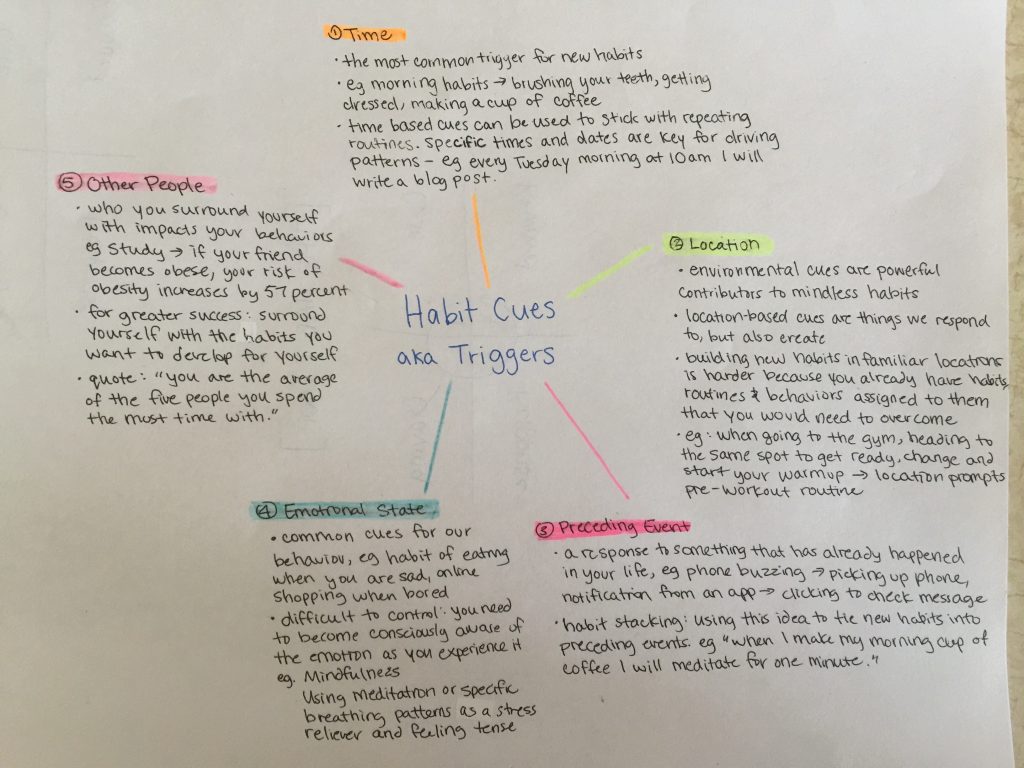 Habit Cues
aka Triggers
① Time
· the most common trigger for new habits
· eg morning habits → brushing your teeth, getting
dressed, making a cup of coffee
· time based cues can be used to stick with repeating
routines. Specific times and dates are key for driving
patterns – eg every Tuesday morning at 10am I will
write a blog post.
② Location
· environmental cues are powerful
contributors to mindless habits
· location-based cues are things we respond
to, but also create
· building new habits in familiar locations
is harder because you already have habits,
routines & behaviors assigned to them
that you would need to overcome
· eg: when going to the gym, heading to
the same spot to get ready, change and
start your warmup → location prompts
pre-workout routine
③ Preceding Event
· a response to something that has already happened
in your life, eg phone buzzing → picking up phone,
notification from an app → clicking to check message
· habit stacking: using this idea to tie new habits into
preceding events. eg "when I make my morning cup of
coffee I will meditate for one minute."
④ Emotional State
· common cues for our
behaviour, eg habit of eating
when you are sad, online
shopping when bored
· difficult to control: you need
to become consciously aware of
the emotion as you experience it
eg. Mindfulness
Using meditation or specific
breathing patterns as a stress
reliever and feeling tense
⑤ Other People
· who you surround yourself
with impacts your behaviors
eg Study → if your friend
becomes obese, your risk of
obesity increases by 57 percent
· for greater success: surround
yourself with the habits you
want to develop for yourself
· quote: "you are the average
of the five people you spend
the most time with."